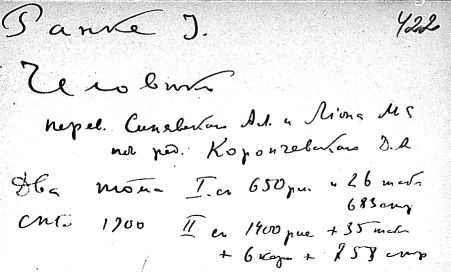 Ранке J. 422
Человѣкъ
перев. Синявскаго Ал. и Ліона М Е
под ред. Коропчевскаго Д. А
Два тома I. съ 650 рис и 26 табл
683 стр
СПб. 1900 II съ 1400 рис + 35 табл
+ 6 карт + 853 стр